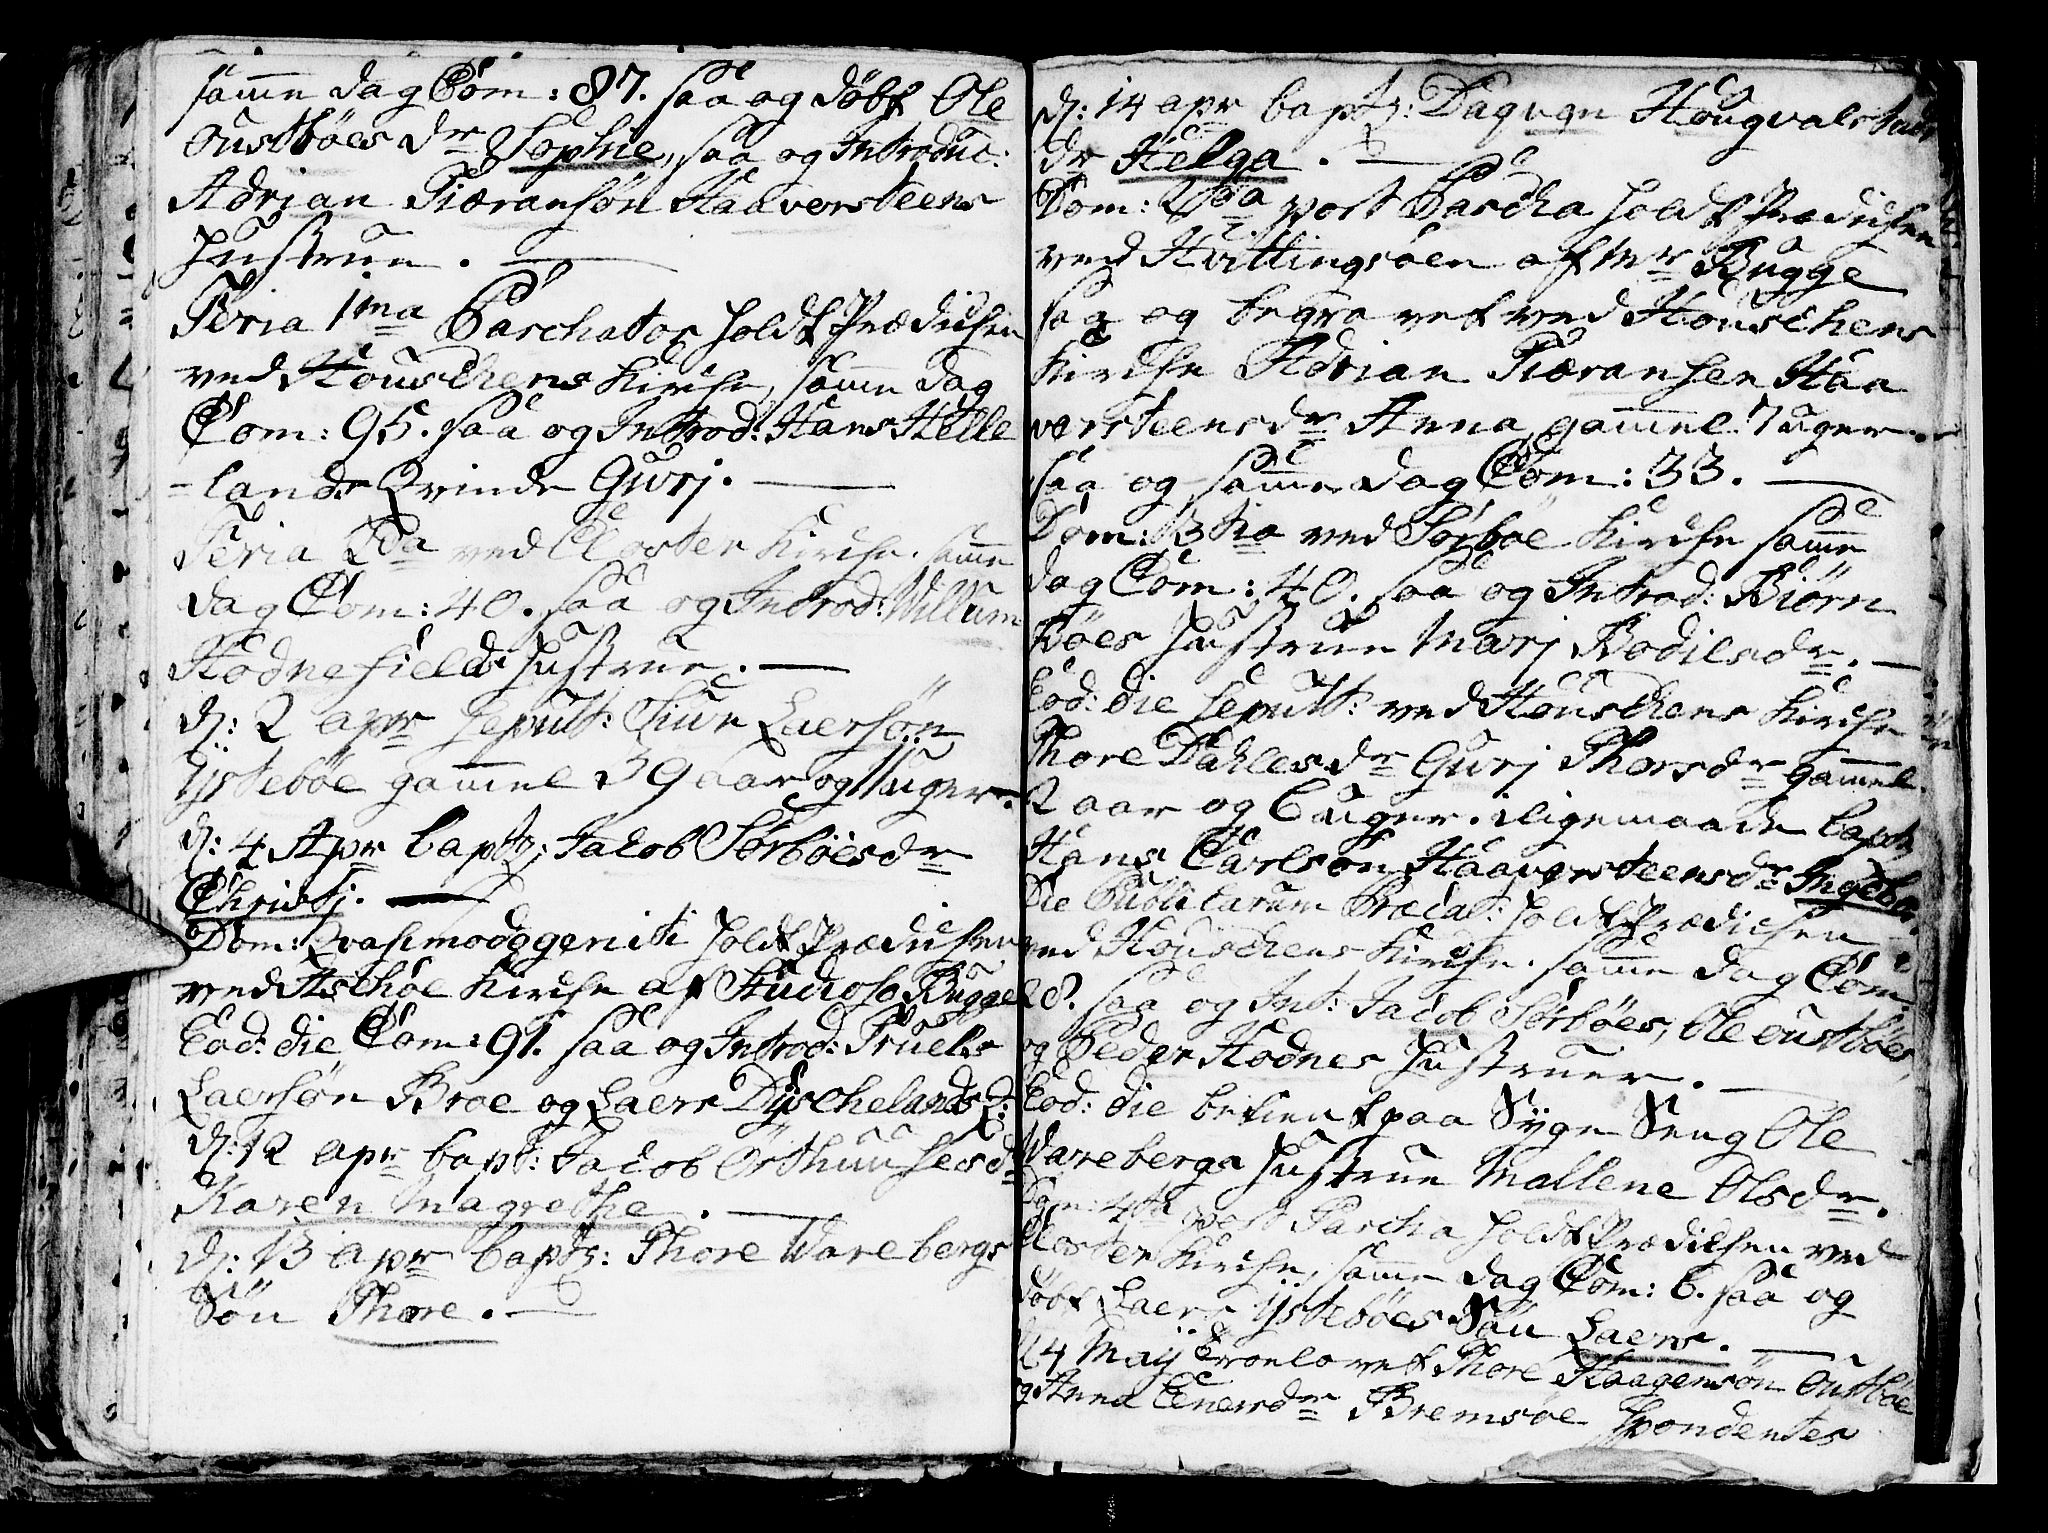 samme dag Com: 87. saa og döbt Ole
Oustböes dr Sophie, saa og Introduc:
Adrian Pæransön Haaversteens
Hustrue.
Feria 1ma Paschatos holdt Prædichen
ved Houschens Kirche, samme dag
Com: 95. saa og Introd: Hans Helle
-lands Qvinde Gurj.
Feria 2da ved Closter Kirche. samme
dag Com: 40. saa og Introd: Willum
Hodnefields Hustrue.
d: 2 apr sepult: Siur Laersön
Ysteböe gammel 39 aar og uger.
d: 4 Apr bapt: Jacob Sörböes dr
Christj.
Dom: Qvasimodogeniti holdt Prædichen
ved Aschöe Kirche af Studioso Bugge
Eod: die Com: 91. saa og Introd: Truels
Laersön Broe og Laers Dÿschelands Q:
d: 12 apr bapt: Jacob Östhuuses dr
Karen Magrethe.
d: 13 apr bapt: Thore Warebergs
Sön Thore.
d: 14 apr bapt: Dagven Hougvalstads
dr Helga.
Dom: 2da post Pascha holdt Prædichen
ved Hvittingsöen af Mr Bugge
saa og begravet ved Houschens
Kirche Adrian Pæransen Haa
versteens dr Anna gammel 7 uger.
saa og samme dag Com: 33.
Dom: 3tia ved Sörböe Kirche samme
dag Com: 40. saa og Introd: Biörn
böes Hustrue Marj Bodilsdr.
Eod: die sepult: ved Houschens Kirche
Thore Dahles dr Gurj Thorsdr gammel
2 aar og 6 uger. iligemaade bapt:
Hans Carlsön Haaversteens dr Ingebor
Die Publicarum Precat: holdt Prædichen
ved Houschens Kirche. samme dag Com
28. saa og Int: Jacob Sörböes, Ole Oustböes,
og Peder Hodnes Hustruer.
Eod: die betient paa Syge Seng Ole
Warebergs Hustrue Mallene Olsdr.
Dom: 4ta post Pascha holdt Prædichen ved
Closter Kirche, samme dag Com: 6. saa og
döbt Laers Ysteböes Sön Laers.
d 4 Maÿ Troelovet Thore Haagensön Oustböe
og Anna Einersdr Bremsöe Spondentes